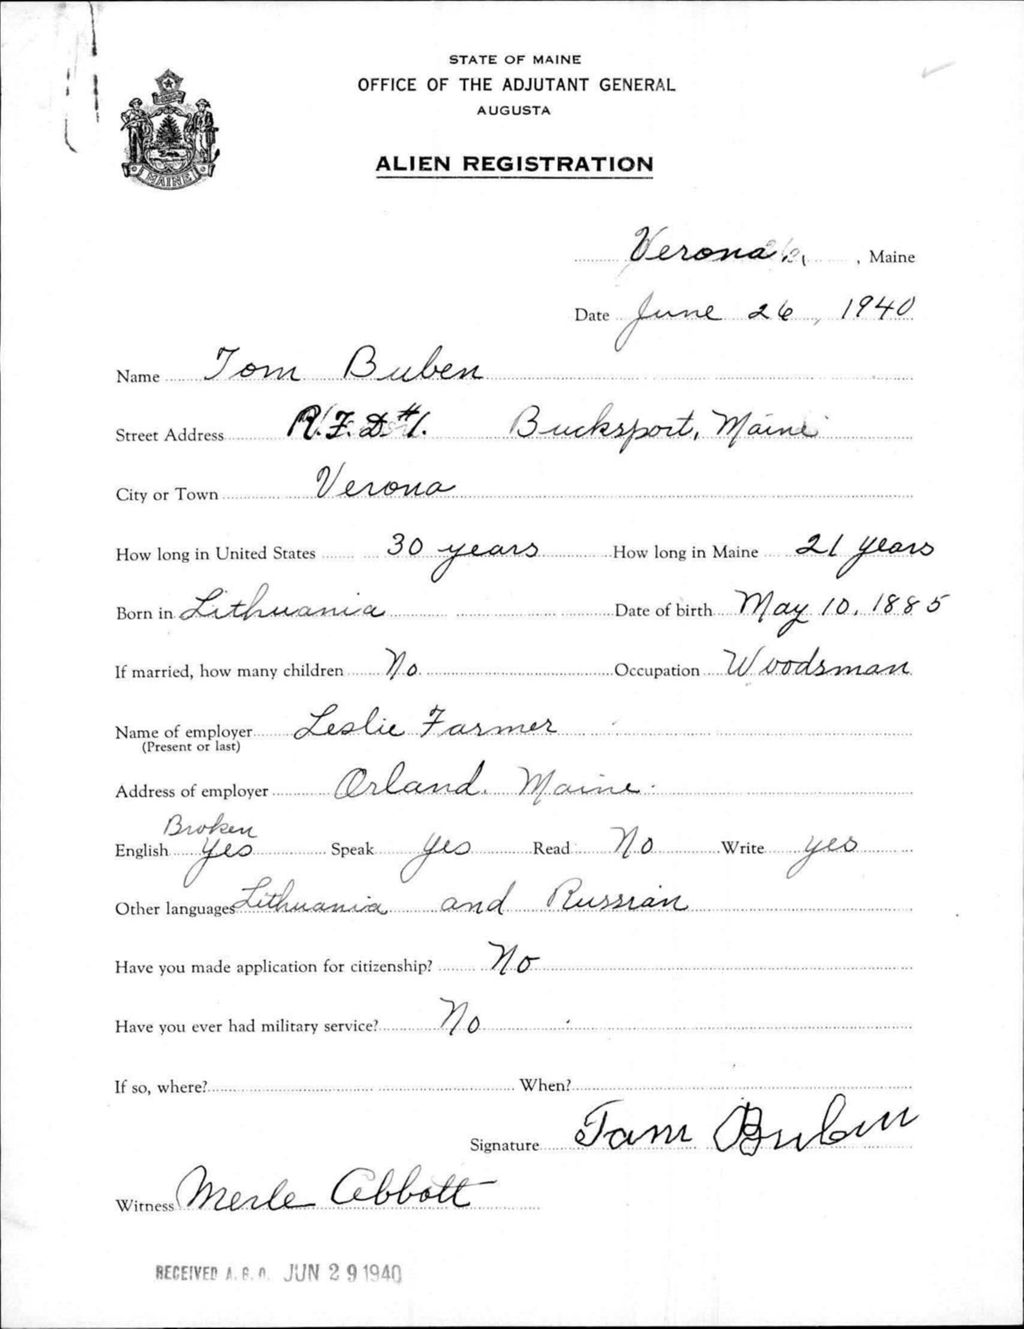 STATE OF MAINE
OFFICE OF THE ADJUTANT GENERAL
AUGUSTA
ALIEN REGISTRATION
MAINE
Verona, Maine
Date June 26, 1940
Name Tom Buben
Street Address R.F.D. #1. Bucksport, Maine
City or Town Verona
How long in United States 30 years How long in Maine 21 years
Born in Lithuania Date of birth May 10, 1885
If married, how many children No. Occupation Woodsman
Name of employer Leslie Farmer
(Present or last)
Address of employer Orland. Maine.
Broken
English Yes Speak Yes Read No Write yes
Other languages Lithuania and Russian
Have you made application for citizenship? No
Have you ever had military service? No
If so, where? When?
Signature Tom Buben
Witness Merle Abbott
RECEIVED A. G. O. JUN 29 1940